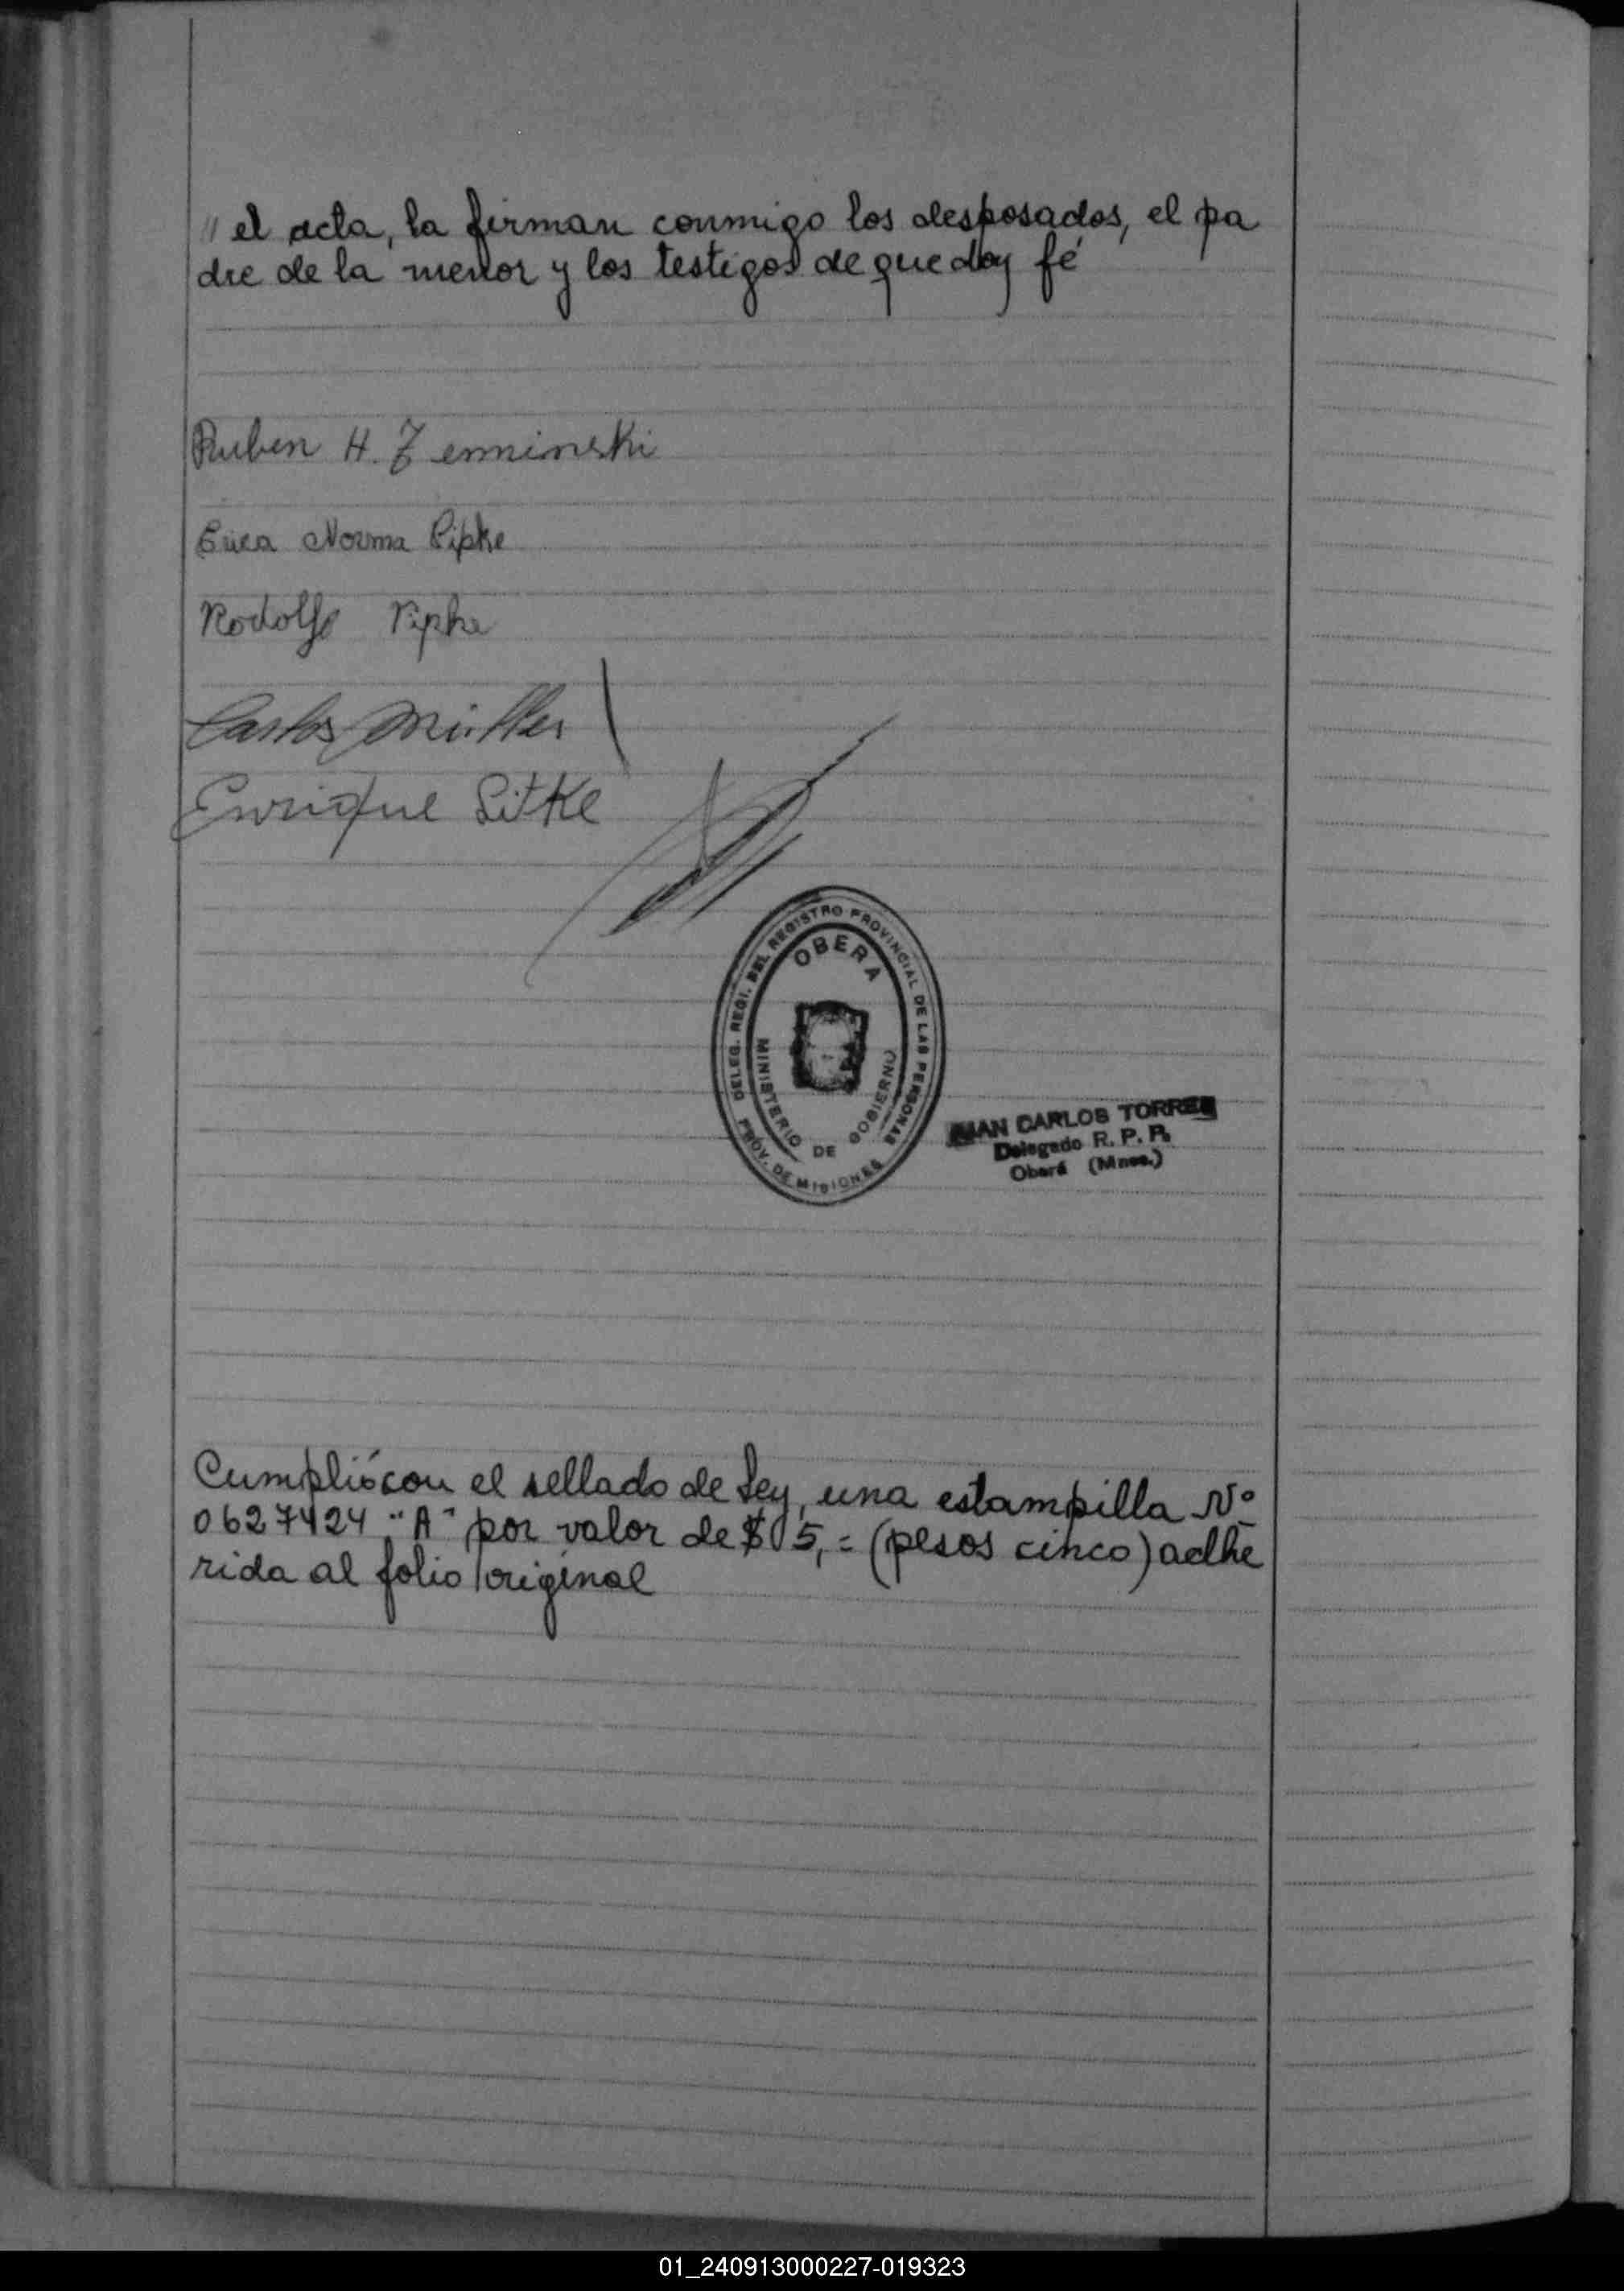 " el acta, la firman conmigo los desposados, el pa
dre de la menor y los testigos de que doy fé
Ruben H. Zemminski
Erica Norma Pipke
Rodolfo Pipke
Carlos Müller
Enrique Litke
DELEG. REGI. DEL REGISTRO PROVINCIAL DE LAS PERSONAS
OBERA
MINISTERIO DE GOBIERNO
PROV. DE MISIONES
JUAN CARLOS TORRES
Delegado R. P. P.
Oberá (Mnes.)
Cumplió con el sellado de Ley, una estampilla Nº
0627424 "A" por valor de $ 5,= (pesos cinco) adhe
rida al folio original
01_240913000227-019323